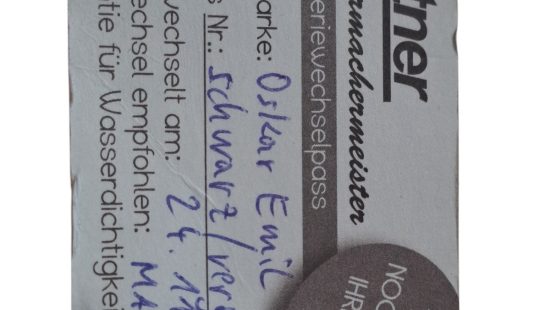 tner
rmachermeister
eriewechselpass
arke: Oskar Emil
s Nr.: schwarz/ver
wechselt am: 24.1
echsel empfohlen: MA
tie für Wasserdichtigkei
NOC
IHR